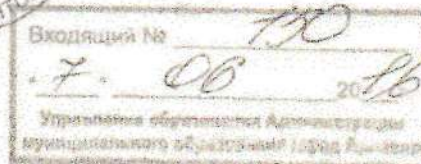 Входящий № 130
. 7 . 06 2016
Управление образования Администрации
муниципального образования город Армавир